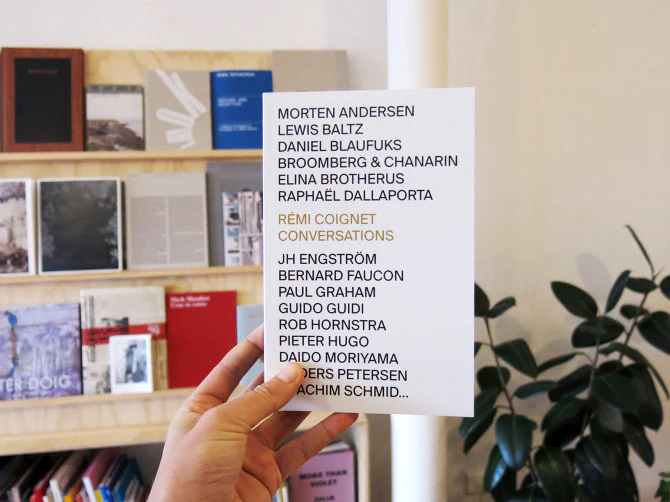 MORTEN ANDERSEN
LEWIS BALTZ
DANIEL BLAUFUKS
BROOMBERG & CHANARIN
ELINA BROTHERUS
RAPHAËL DALLAPORTA
RÉMI COIGNET
CONVERSATIONS
JH ENGSTRÖM
BERNARD FAUCON
PAUL GRAHAM
GUIDO GUIDI
ROB HORNSTRA
PIETER HUGO
DAIDO MORIYAMA
DERS PETERSEN
ACHIM SCHMID...
TER DOIG
MORE THAN
VIOLET